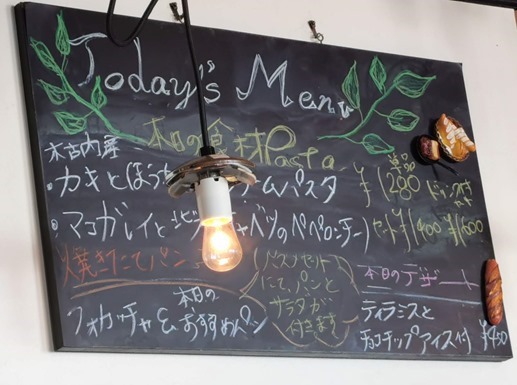 Today's Menu
本日の食材Pasta
木古内産
・カキとほうムパスタ
単品
¥1280
ドリンク付
セット
・マコガレイとキャベツのペペロンチーノ
セット¥1400 ¥1600
焼きたてパン
(パスタセット
にて、パンと
サラダが
付きます)
フォカッチャ&本日の
おすすめパン
本日のデザート
ティラミスと
チョコチップアイス付 ¥450